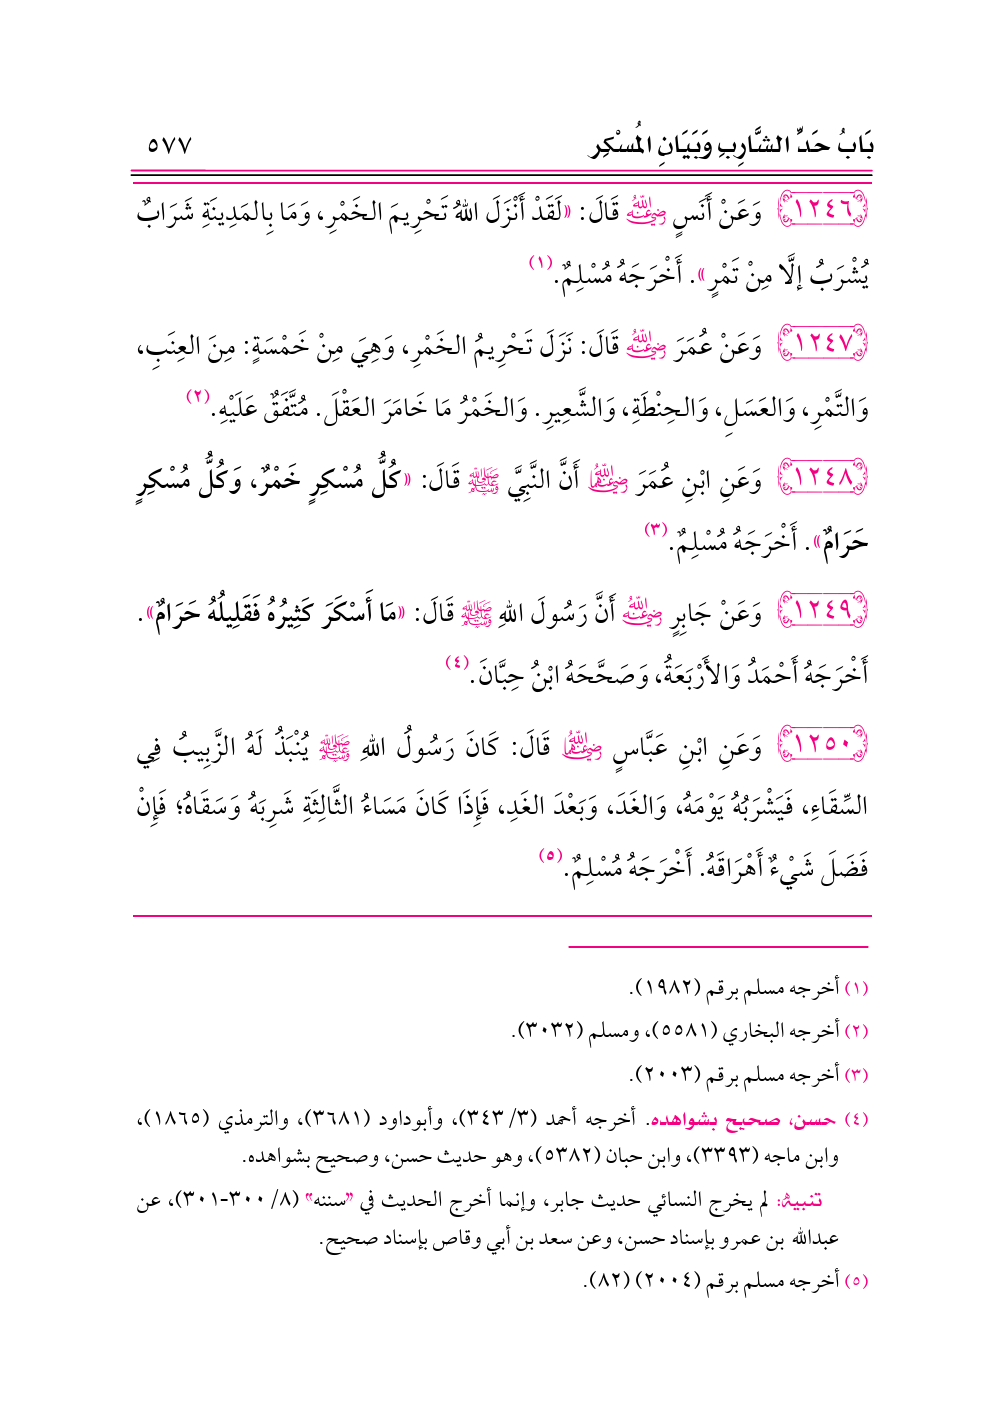 بَابُ حَدِّ الشَّارِبِ وَبَيَانِ المُسْكِرِ ٥٧٧
١٢٤٦ وَعَنْ أَنَسٍ رضي الله عنه قَالَ: «لَقَدْ أَنْزَلَ اللهُ تَحْرِيمَ الخَمْرِ، وَمَا بِالمَدِينَةِ شَرَابٌ
يُشْرَبُ إلَّا مِنْ تَمْرٍ». أَخْرَجَهُ مُسْلِمٌ.(١)
١٢٤٧ وَعَنْ عُمَرَ رضي الله عنه قَالَ: نَزَلَ تَحْرِيمُ الخَمْرِ، وَهِيَ مِنْ خَمْسَةٍ: مِنَ العِنَبِ،
وَالتَّمْرِ، وَالعَسَلِ، وَالحِنْطَةِ، وَالشَّعِيرِ. وَالخَمْرُ مَا خَامَرَ العَقْلَ. مُتَّفَقٌ عَلَيْهِ.(٢)
١٢٤٨ وَعَنِ ابْنِ عُمَرَ رضي الله عنهما أَنَّ النَّبِيَّ ﷺ قَالَ: «كُلُّ مُسْكِرٍ خَمْرٌ، وَكُلُّ مُسْكِرٍ
حَرَامٌ». أَخْرَجَهُ مُسْلِمٌ.(٣)
١٢٤٩ وَعَنْ جَابِرٍ رضي الله عنه أَنَّ رَسُولَ اللهِ ﷺ قَالَ: «مَا أَسْكَرَ كَثِيرُهُ فَقَلِيلُهُ حَرَامٌ».
أَخْرَجَهُ أَحْمَدُ وَالأَرْبَعَةُ، وَصَحَّحَهُ ابْنُ حِبَّانَ.(٤)
١٢٥٠ وَعَنِ ابْنِ عَبَّاسٍ رضي الله عنهما قَالَ: كَانَ رَسُولُ اللهِ ﷺ يُنْبَذُ لَهُ الزَّبِيبُ فِي
السِّقَاءِ، فَيَشْرَبُهُ يَوْمَهُ، وَالغَدَ، وَبَعْدَ الغَدِ، فَإِذَا كَانَ مَسَاءُ الثَّالِثَةِ شَرِبَهُ وَسَقَاهُ؛ فَإِنْ
فَضَلَ شَيْءٌ أَهْرَاقَهُ. أَخْرَجَهُ مُسْلِمٌ.(٥)
(١) أخرجه مسلم برقم (١٩٨٢).
(٢) أخرجه البخاري (٥٥٨١)، ومسلم (٣٠٣٢).
(٣) أخرجه مسلم برقم (٢٠٠٣).
(٤) حسن، صحيح بشواهده. أخرجه أحمد (٣/ ٣٤٣)، وأبوداود (٣٦٨١)، والترمذي (١٨٦٥)،
وابن ماجه (٣٣٩٣)، وابن حبان (٥٣٨٢)، وهو حديث حسن، وصحيح بشواهده.
تنبيه: لم يخرج النسائي حديث جابر، وإنما أخرج الحديث في "سننه" (٨/ ٣٠٠-٣٠١)، عن
عبدالله بن عمرو بإسناد حسن، وعن سعد بن أبي وقاص بإسناد صحيح.
(٥) أخرجه مسلم برقم (٢٠٠٤) (٨٢).